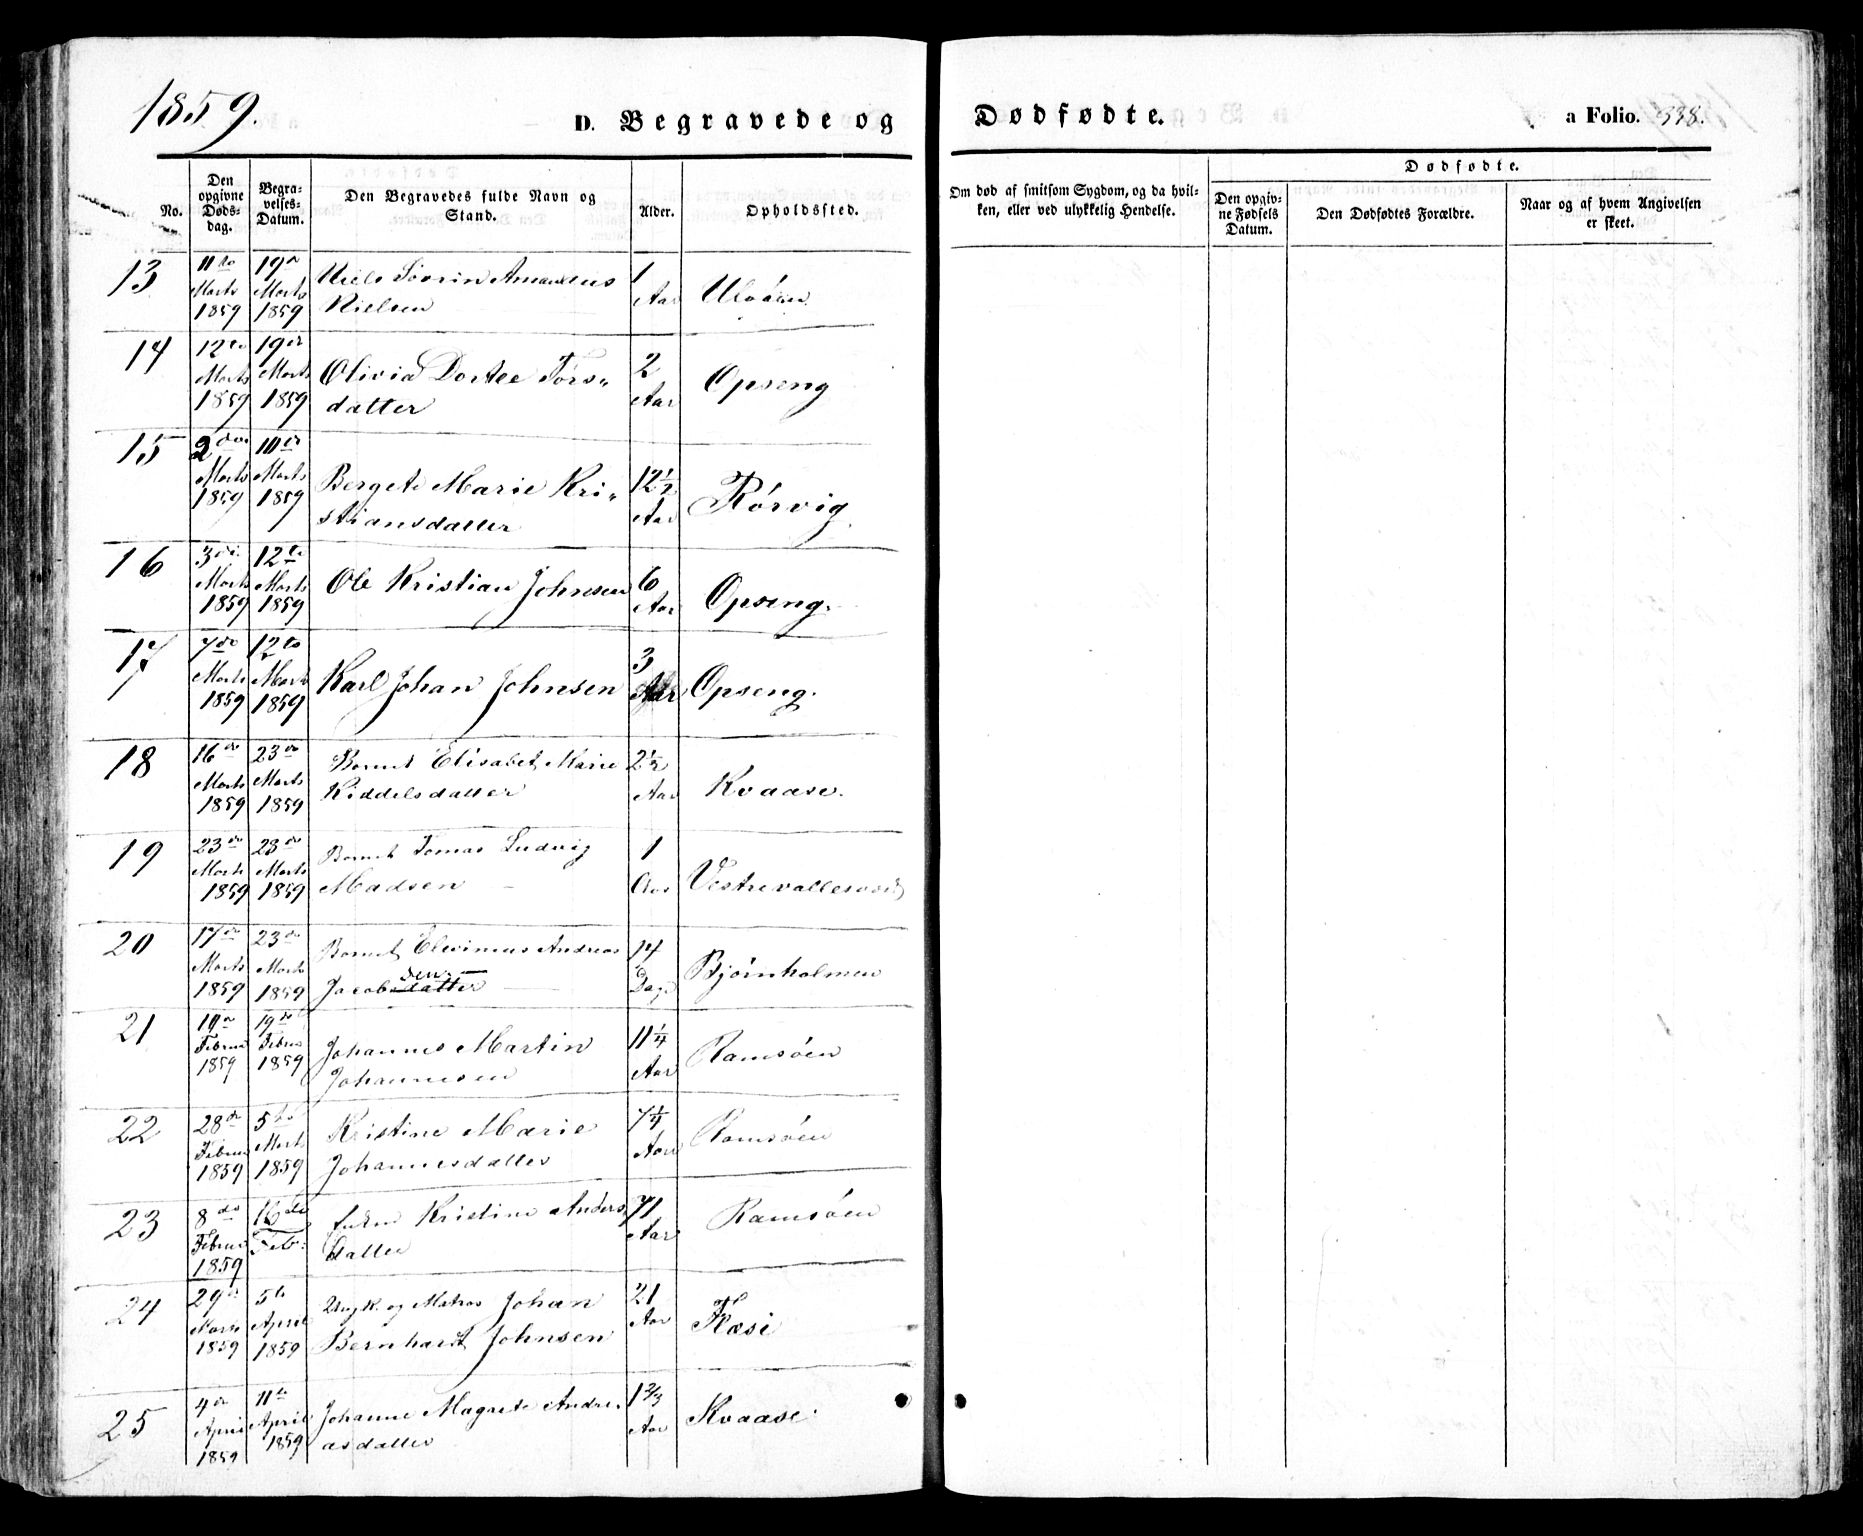 1859.
D. Begravede og Dødfødte.
a Folio. 338.
No.
Den opgivne Døds-dag.
Begra-velses-Datum.
Den Begravedes fulde Navn og Stand.
Alder.
Opholdssted.
Om død af smitsom Sygdom, og da hvil-ken, eller ved ulykkelig Hendelse.
Dødfødte.
Den opgiv-ne Fødsels Datum.
Den Dødfødtes Forældre.
Naar og af hvem Angivelsen er skeet.
13 11te Marts 1859 19de Marts 1859 Niels Søvrin Amandeus Nielsen 1 Aar Ulvøen
14 12te Marts 1859 19de Marts 1859 Olivia Dortee Tørs-datter 2 Aar Opseng
15 2den Marts 1859 10de Marts 1859 Bergete Marie Kri-stiansdatter 12½ Aar Rørvig
16 3die Marts 1859 12te Marts 1859 Ole Kristian Johnsen 6 Aar Opseng.
17 7de Marts 1859 12te Marts 1859 Karl Johan Johnsen 3 Aar Opseng.
18 16de Marts 1859 23de Marts 1859 Barnet Elisabet Marie Kiddelsdatter 2½ Aar Kvaase.
19 23de Marts 1859 23de Marts 1859 Barnet Tomas Ludvig Madsen 1 Aar
20 17de Marts 1859 23de Marts 1859 Barnet Elevinius Andreas Jacobsdatter sen 14 Dage Bjørnholmen
21 Februar 1859 19de Februar 1859 Johannes Martin Johannesen 11¼ Aar Ramsøen
22 28de Februar 1859 5te Marts 1859 Kristine Marie Johannesdatter 7¼ Aar Ramsøen
23 8de Februar 1859 16de Feb: Kristine Anders-datter 71 Aar Ramsøen
24 29de Marts 1859 5te April 1859 Ungk. og Matros Johan Bernhardt Johnsen 21 Aar
25 4de April 1859 11te April 1859 Johanne Magrete Andre-asdatter 1⅔ Aar Kvaase.